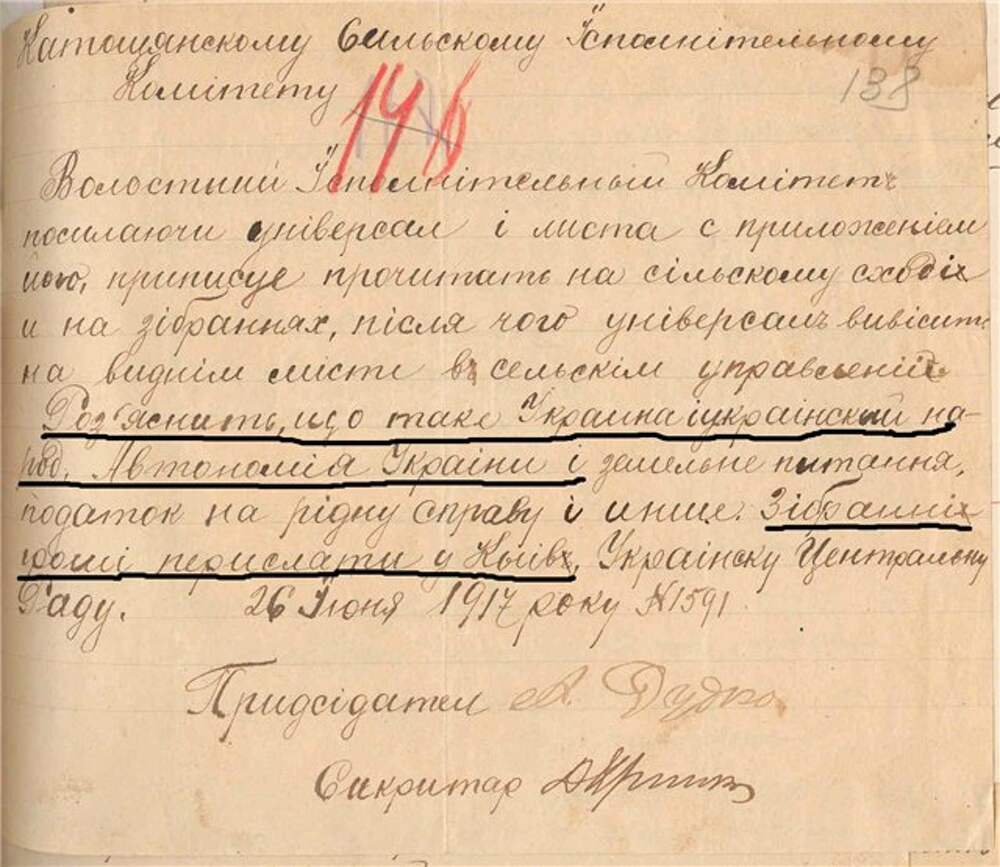 Катощанскому Сильскому Їсполнітельному
Комітету
146
138
Волостний Їсполнітельный Комітетъ
посилаючи універсал і листа с приложеніем
його, приписце прочитать на сільскому сході
и на зібраннях, після чого універсалъ вивісить
на виднім мисти въ сельскім управленіі
Роз'яснить, що таке Украина і украінский на-
род, Автономія Украіни і земельне питання,
податок на рідну справу і инше. Зібранні
гроші перислати у Кыівъ, Украінску Центральну
Раду. 26 Їюня 1917 року №1591.
Придсідател А. Дудко
Сикритар